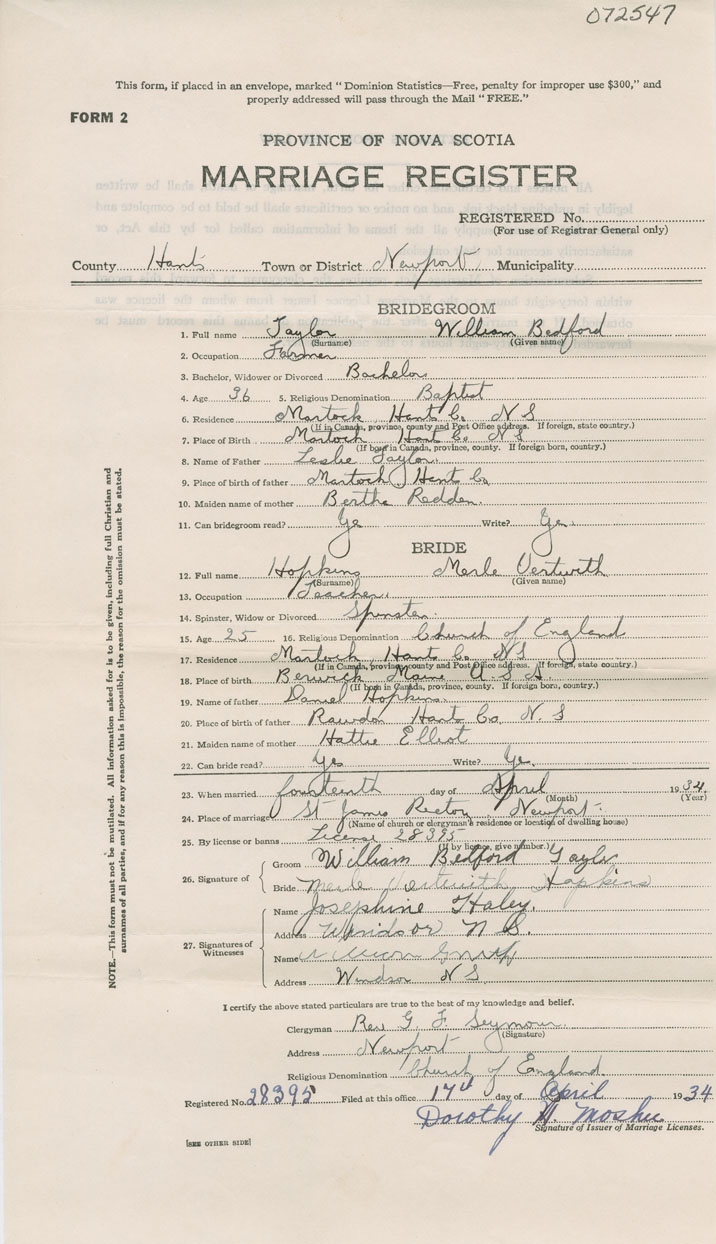 072547
This form, if placed in an envelope, marked "Dominion Statistics—Free, penalty for improper use $300," and
properly addressed will pass through the Mail "FREE."
FORM 2
PROVINCE OF NOVA SCOTIA
MARRIAGE REGISTER
REGISTERED No.
(For use of Registrar General only)
County Hants Town or District Newport Municipality
BRIDEGROOM
1. Full name Taylor William Bedford
(Surname) (Given name)
2. Occupation Farmer
3. Bachelor, Widower or Divorced Bachelor
4. Age 36 5. Religious Denomination Baptist
6. Residence Martock Hants Co. N S
(If in Canada, province, county and Post Office address. If foreign, state country.)
7. Place of Birth Martock Hants Co. N S
(If born in Canada, province, county. If foreign born, country.)
8. Name of Father Leslie Taylor
9. Place of birth of father Martock Hants Co
10. Maiden name of mother Bertha Redden
11. Can bridegroom read? Yes Write? Yes
BRIDE
12. Full name Hopkins Merle Vertwith
(Surname) (Given name)
13. Occupation Teacher
14. Spinster, Widow or Divorced Spinster
15. Age 25 16. Religious Denomination Church of England
17. Residence Martock Hants Co. N S
(If in Canada, province, county and Post Office address. If foreign, state country.)
18. Place of birth Berwick Maine U.S.A.
(If born in Canada, province, county. If foreign born, country.)
19. Name of father Daniel Hopkins
20. Place of birth of father Rawdon Hants Co. N. S
21. Maiden name of mother Hattie Elliot
22. Can bride read? Yes Write? Yes
23. When married fourteenth day of April 1934
(Month) (Year)
24. Place of marriage St James Rectory Newport
(Name of church or clergyman's residence or location of dwelling house)
25. By license or banns License 28395
(If by license, give number.)
26. Signature of
Groom William Bedford Taylor
Bride Merle Vertwith Hopkins
27. Signatures of Witnesses
Name Josephine Haley.
Address Windsor N S.
Name
Address Windsor N S
I certify the above stated particulars are true to the best of my knowledge and belief.
Clergyman Rev G. F. Seymour
(Signature)
Address Newport
Religious Denomination Church of England
Registered No. 28395 Filed at this office 17th day of April 1934
Dorothy
Signature of Issuer of Marriage Licenses.
[SEE OTHER SIDE]
NOTE.—This form must not be mutilated. All information asked for is to be given, including full Christian and
surnames of all parties, and if for any reason this is impossible, the reason for the omission must be stated.